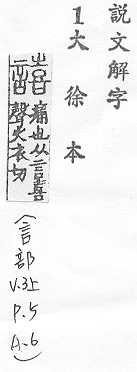 説文解字
1大徐本
譆 痛也从言喜
聲火衣切
(言部 V.3上 P.5 A.6)